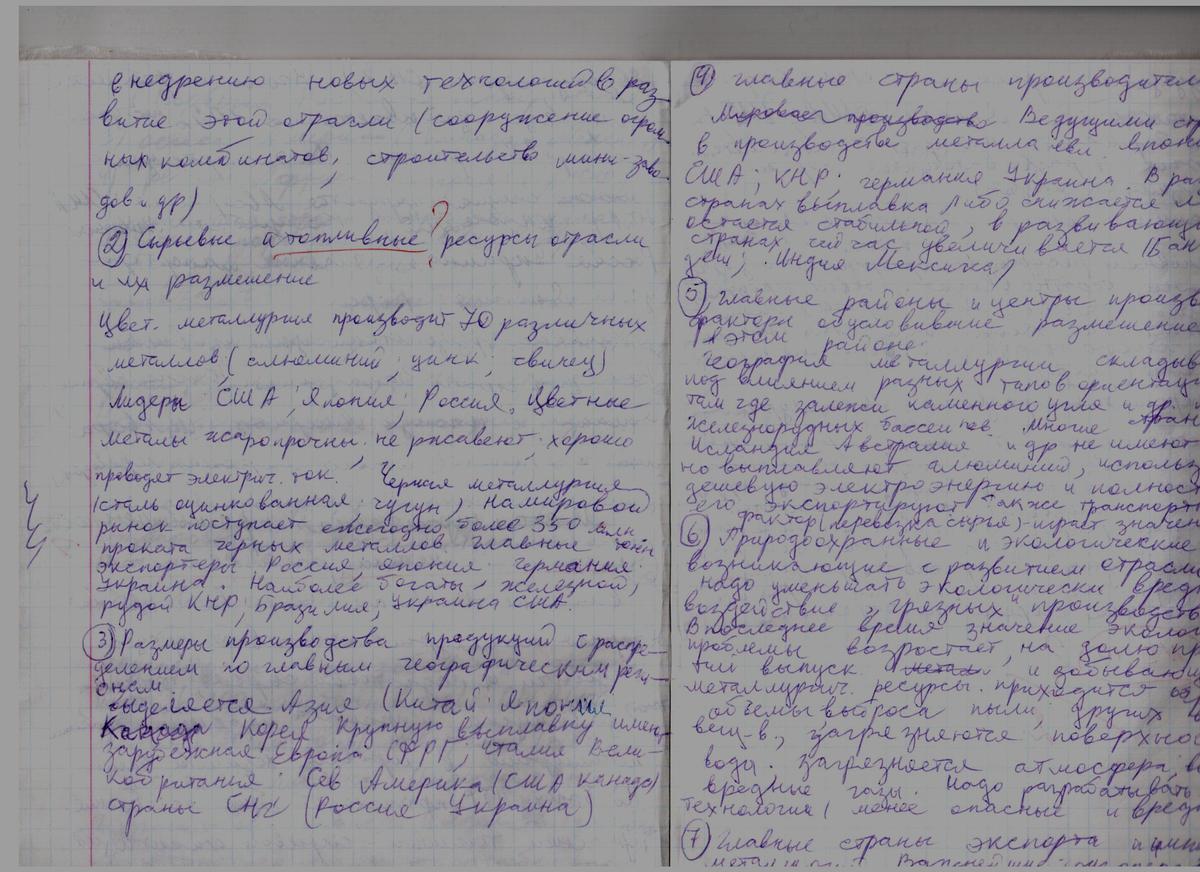 внедрению новых технологий в раз-
витие этой отрасли (сооружение огром-
ных комбинатов, строительство мини-заво-
дов и др)
② Сырьевые и топливные ? ресурсы отрасли
и их размещение
Цвет. металлургия производит 70 различных
металлов (алюминий, цинк, свинец)
Лидеры США, Япония, Россия. Цветные
металы жаропрочны, не ржавеют, хорошо
проводят электрич. ток. Черная металлургия
(сталь оцинкованная, чугун), на мировой
рынок поступает ежегодно более 350 млн
проката черных металлов главные
экспортеры Россия, япония германия
Украина. Наиболее богаты железной,
рудой КНР, Бразилия, Украина США.
③ Размеры производства продукций с распре-
делением по главным географическим реги-
онам
выделяется Азия (Китай Япония
Корея Крупную выплавку имеет
зарубежная Европа (ФРГ, италия Вели-
кобритания. Сев Америка (США канада)
страны СНГ (Россия Украина)
④ главные страны производител
Мировое производство Ведущими ст
в производстве металла явл Япони
США, КНР, германия Украина. В ра
странах выплавка либо снижается
остается стабильной, в развивающ
странах сейчас увеличивается (
Индия Мексика)
⑤ Главные районы и центры произв
факторы обусловившие размещение
в этом районе.
география металлургии складыв
под влиянием разных типов ориентац
там где залежи каменного угля и др.
железнорудных бассейнов. Многие стран
Исландия Австралия и др не имеют
но выплавляют алюминий, использ
дешевую электроэнергию и полност
его экспортируют также транспорт
фактор (перевозка сырья) играет значен
⑥ Природоохранные и экологические
возникающие с развитием отрасли
надо уменьшать экологически вред
воздействие "грязных" производств
В последнее время значение эколог
проблемы возрастает, на долю пр
тий выпуск метал и добывающ
металлургич. ресурсы. приходится
объемы выброса пыли, других в
вещ-в, загрязняются поверхнос
вода. загрязняется атмосфера, в
вредные газы. Надо разрабатывать
технологии, менее опасные и вред
⑦ Главные страны экспорта и имп